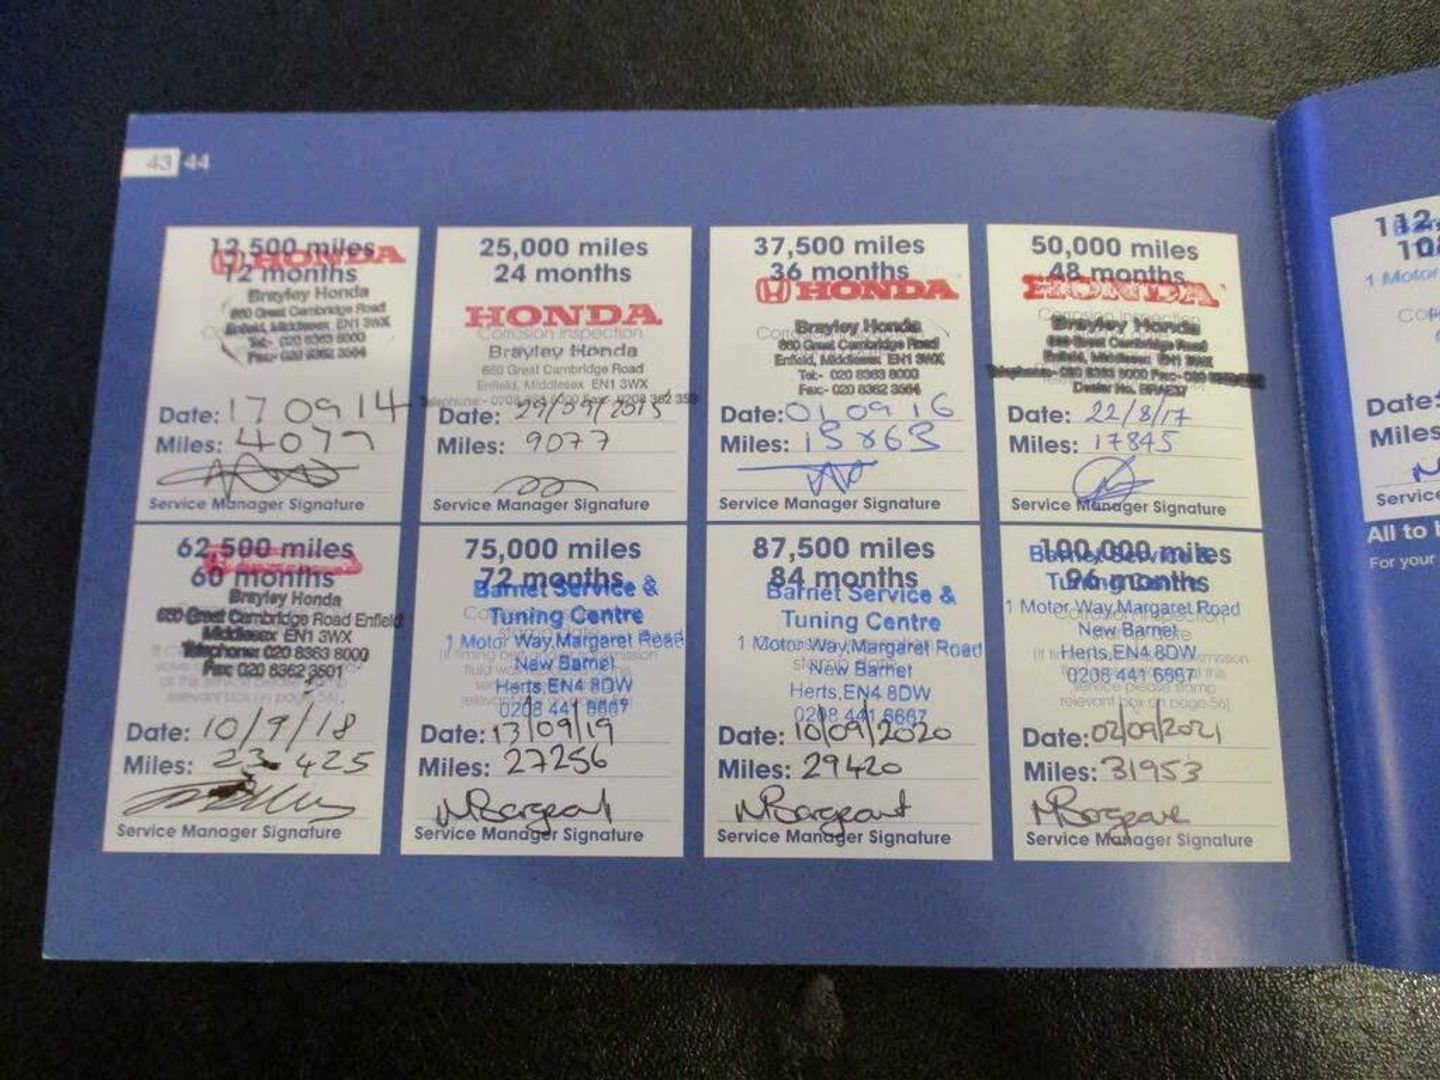 43 44
12,500 miles
12 months
HONDA
Brayley Honda
660 Great Cambridge Road
Enfield, Middlesex EN1 3WX
Tel:- 020 8363 8000
Fax:- 020 8362 3564
Date: 17 09 14
Miles: 4077
Service Manager Signature
25,000 miles
24 months
HONDA
Corrosion inspection
Brayley Honda
660 Great Cambridge Road
Enfield, Middlesex EN1 3WX
Date: 29/09/2015
Miles: 9077
Service Manager Signature
37,500 miles
36 months
HONDA
Brayley Honda
660 Great Cambridge Road
Enfield, Middlesex EN1 3WX
Tel:- 020 8363 8000
Fax:- 020 8362 3564
Date: 01 09 16
Miles: 13863
Service Manager Signature
50,000 miles
48 months
HONDA
Corrosion inspection
Brayley Honda
660 Great Cambridge Road
Enfield, Middlesex EN1 3WX
Date: 22/8/17
Miles: 17845
Service Manager Signature
62,500 miles
60 months
Brayley Honda
660 Great Cambridge Road Enfield
Middlesex EN1 3WX
Telephone: 020 8363 8000
Fax: 020 8362 3501
relevant box on page 56]
Date: 10/9/18
Miles: 23425
Service Manager Signature
75,000 miles
72 months
Barnet Service &
Tuning Centre
1 Motor Way, Margaret Road
New Barnet
Herts, EN4 8DW
0208 441 6667
Date: 13/09/19
Miles: 27256
Service Manager Signature
87,500 miles
84 months
Barnet Service &
Tuning Centre
1 Motor Way, Margaret Road
New Barnet
Herts, EN4 8DW
0208 441 6667
Date: 10/09/2020
Miles: 29420
Service Manager Signature
100,000 miles
96 months
Barnet Service &
Tuning Centre
1 Motor Way, Margaret Road
New Barnet
Herts, EN4 8DW
0208 441 6667
service please stamp
relevant box on page 56]
Date: 02/09/2021
Miles: 31953
Service Manager Signature
1 Motor
Date:
Miles
Service
All to
For your